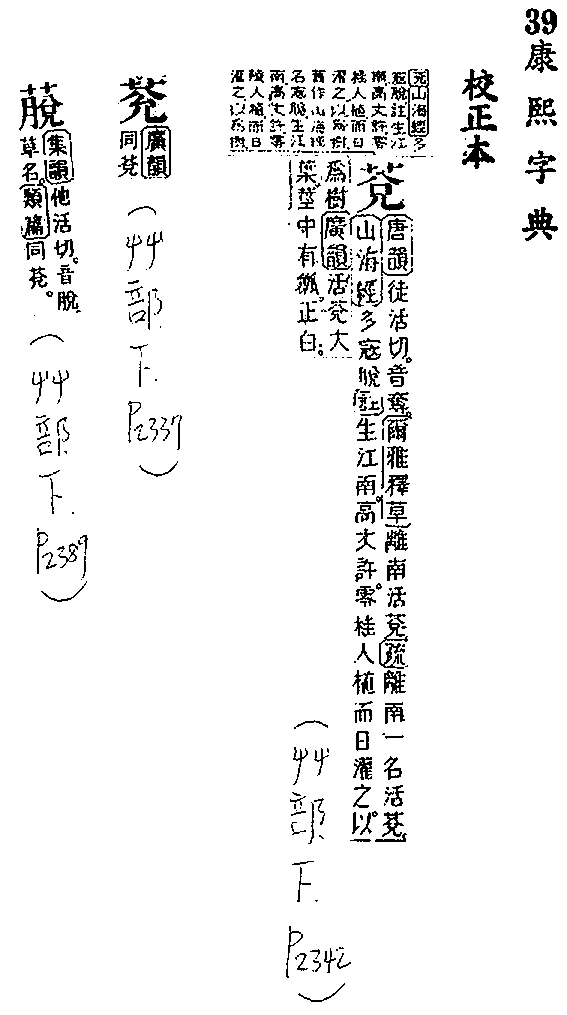 39康熙字典
校正本
莌山海經多
寇脫註生江
南高丈許零
桂人植而日
灌之以爲樹
舊作山海經
名寇脫生江
南高丈許零
陵人植而日
灌之以爲樹
莌
唐韻徒活切。音奪。爾雅釋草離南活莌疏離南一名活莌
山海經多寇脫註生江南。高丈許。零桂人植而日灌之以。
爲樹廣韻活莌大
葉莖中有瓤。正白。
(艸部下.P2342)
莌
廣韻
同莌
(艸部下.P2337)
蛻
集韻他活切。音脫
草名。類篇同莌。
(艸部下.P2389)